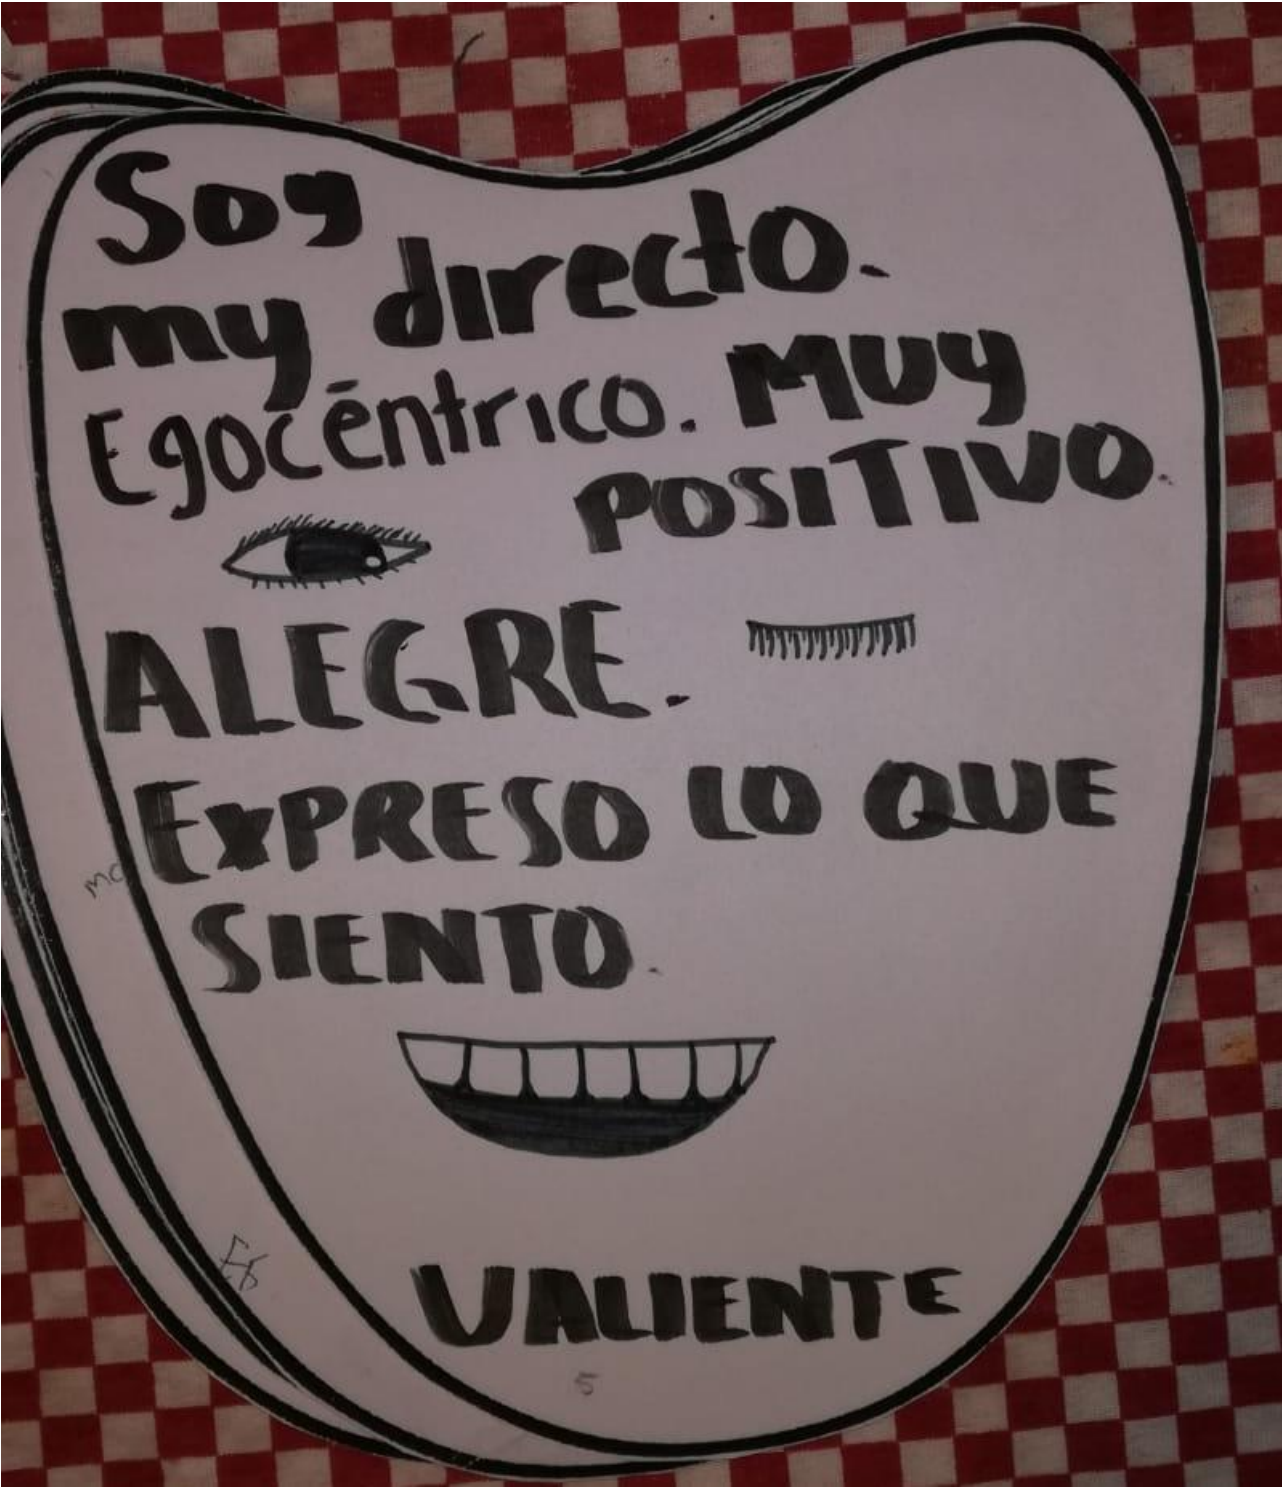 Soy
my directo.
Egocéntrico. MUY
POSITIVO.
ALEGRE.
EXPRESO LO QUE
SIENTO.
VALIENTE
5